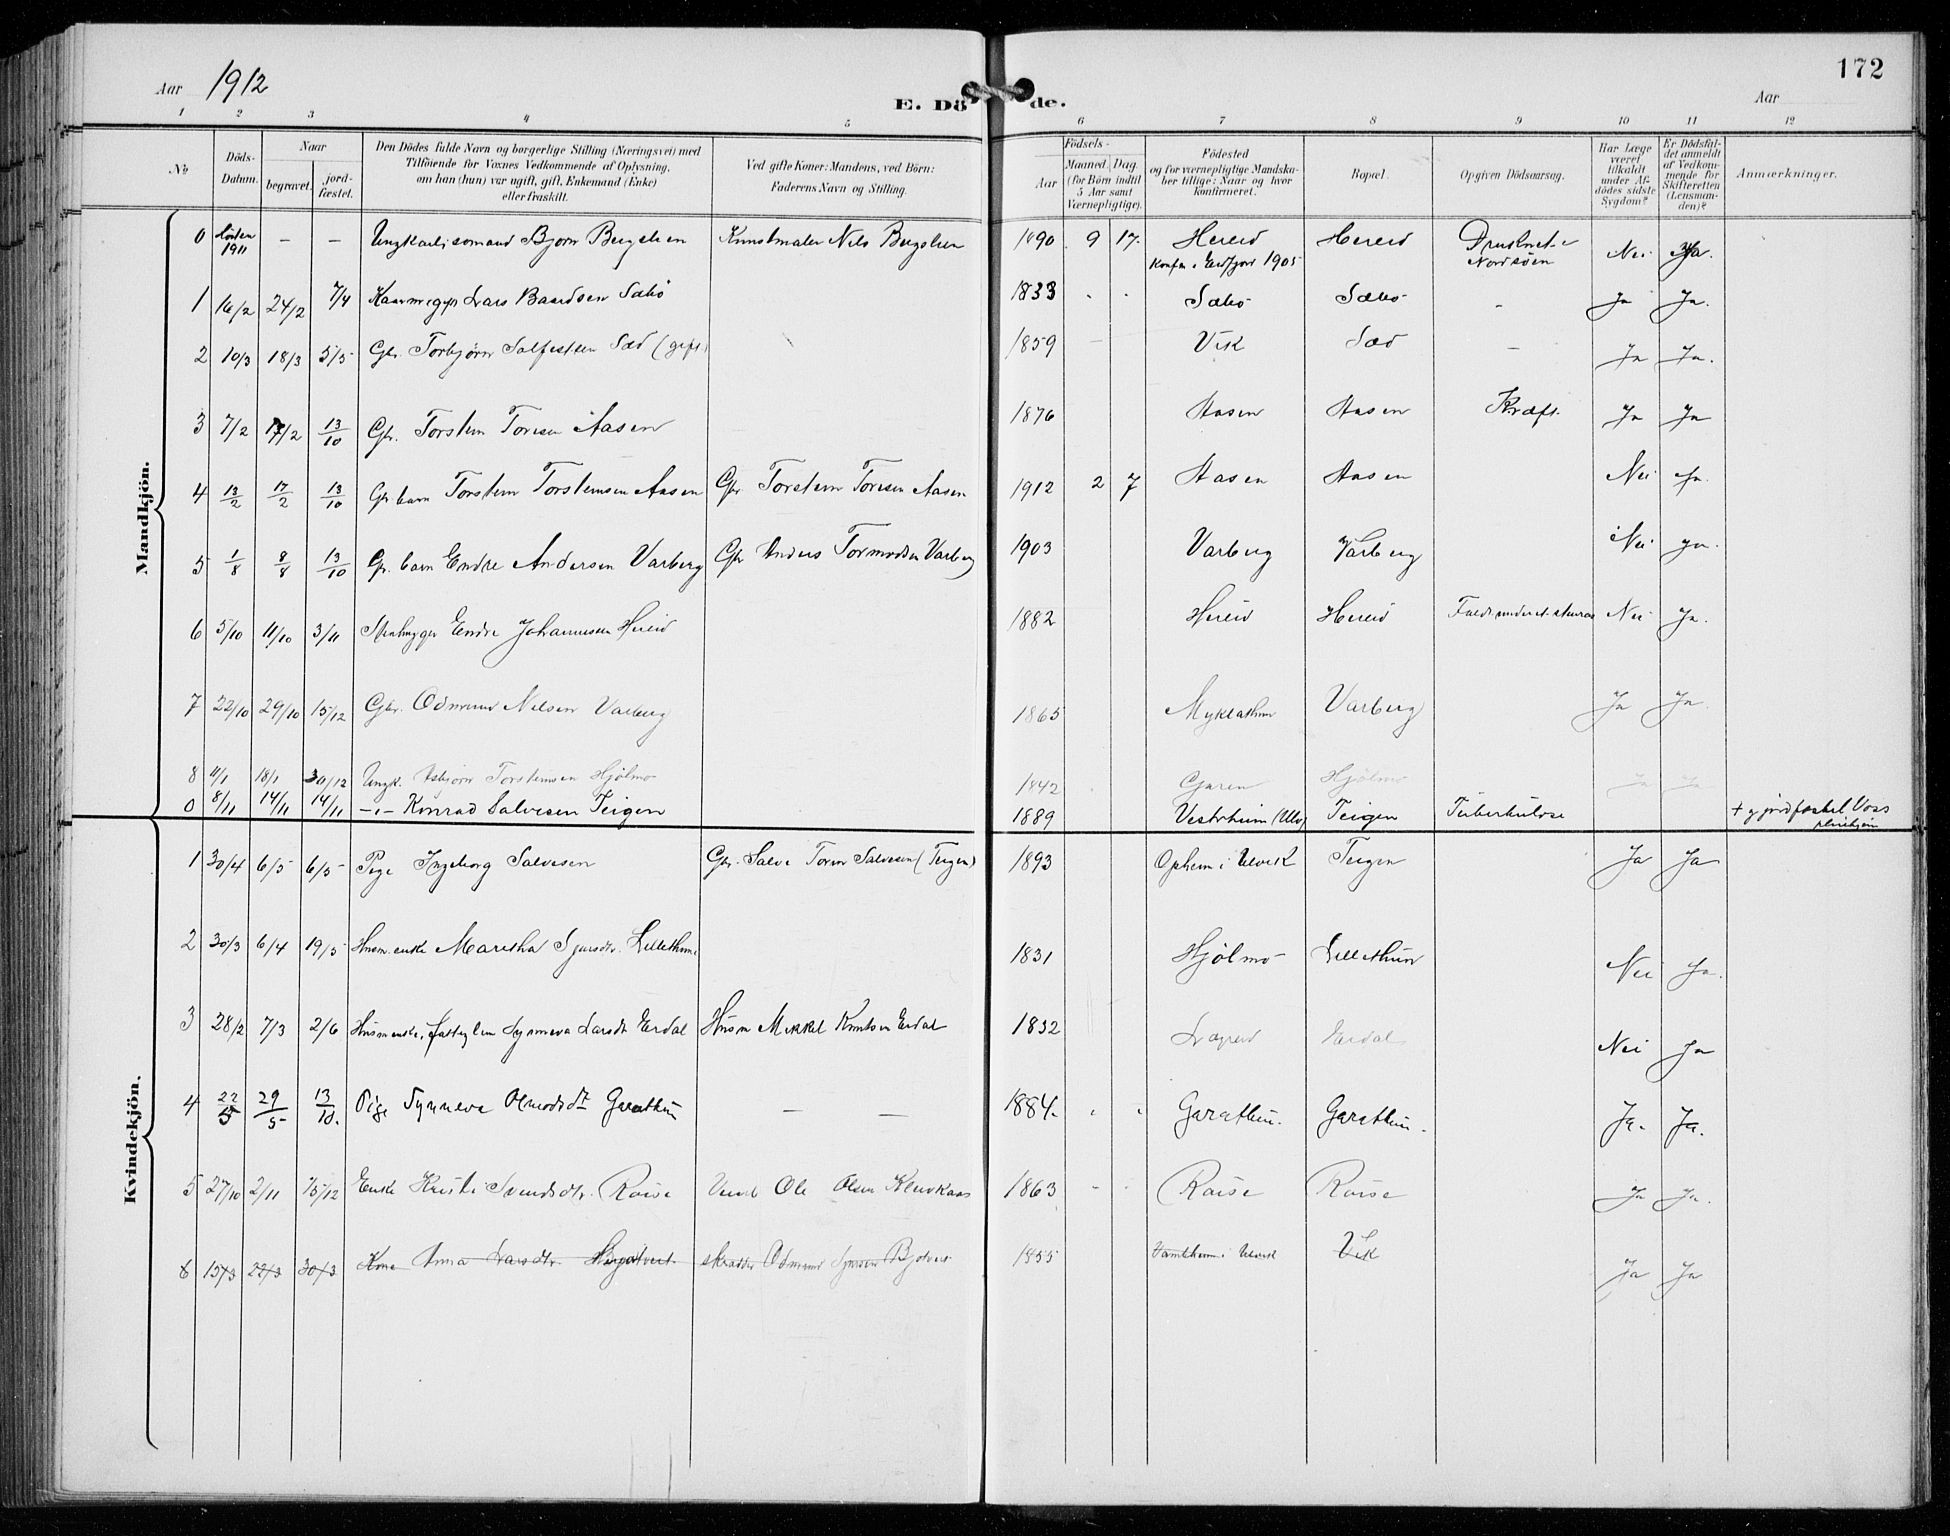 172
Aar 1912
E. Döde.
Aar
1 2 3 4 5 6 7 8 9 10 11 12
No
Döds-Datum.
Naar
begravet.
jord-fæstet.
Den Dödes fulde Navn og borgerlige Stilling (Næringsvei) med
Tilföiende for Voxnes Vedkommende af Oplysning,
om han (hun) var ugift, gift, Enkemand (Enke)
eller fraskilt.
Ved gifte Koner: Mandens, ved Börn:
Faderens Navn og Stilling.
Födsels-
Aar
Maaned. Dag.
(for Börn indtil
5 Aar samt
Værnepligtige).
Födested
og for værnepligtige Mandska-
ber tillige: Naar og hvor
konfirmeret.
Bopæl.
Opgiven Dödsaarsag.
Har Læge
været
tilkaldt
under Af-
dödes sidste
Sygdom?
Er Dödsfal-
det anmeldt
af Vedkom-
mende for
Skifteretten
(Lensman-
den)?
Anmærkninger.
Mandkjön.
0 1911 — — Ungkarl sömand Bjorn Bergslien Kunstmaler Nils Bergslien 1890 9 17. Hereid Konfm. i Eidfjord 1905 Hereid Druknet i Nordsöen Nei Ja.
1 16/2 24/2 7/4 Lars Baardsen Sæbö 1833 Sæbö Sæbö - Ja Ja.
2 10/3 18/3 5/5 Gbr. Torbjörn Salfestsen Sæd (gift) 1859 - Vik Sæd - Ja Ja.
3 7/2 17/2 13/10 Gbr. Torstein Toresen Aasen 1876 Aasen Aasen Kræft. Ja Ja
4 13/2 17/2 13/10 Gbr. barn Torstein Torsteinsen Aasen Gbr. Torstein Toresen Aasen 1912 2 7 Aasen Aasen Nei Ja.
5 1/8 8/8 13/10 Gbr. barn Endre Andersen Varberg Gbr Anders Tormodsen Varberg 1903 Varberg Varberg Nei Ja.
6 5/10 11/10 3/11 Endre Johannessen Hereid 1882 Hereid Hereid Nei Ja.
7 22/10 29/10 15/12 Gbr. Odmund Nilsen Varberg 1865 Myklathun Varberg Ja Ja.
8 11/1 18/1 30/12 Ungk. Asbjörn Torsteinsen Hjölmo 1842 Garen Hjölmo Ja Ja
0 8/11 14/11 14/11 —"— Konrad Salvesen Teigen 1889 Vestrheim (Ulv) Teigen Tuberkulose + og jordfæstet Voss pleiehjem
Kvindekjön.
1 30/4 6/5 6/5 Pige Ingeborg Salvesen Gbr. Salve Salvesen (Teigen) 1893 Opheim i Ulvik Teigen Ja Ja
2 30/3 6/4 19/5 Husm. enke Maritha Sjursdtr. Lillethun 1831 Hjölmo Lillethun Nei Ja.
3 28/2 7/3 2/6 Husm enke, fattiglem Synneva Larsdt Erdal Husm Mikkel Knutsen Erdal 1832 Lægreid Erdal Nei Ja
4 22/5 29/5 13/10. Pige Synneve Olmodsdt. Garathun — — 1884. Garathun. Garathun. Ja. Ja.
5 27/10 2/11 15/12 Enke Kristi Svendsdtr. Roise Ole Olsen 1863 Roise Roise Ja Ja.
6 15/3 22/3 30/3 Kone Anna Larsdtr. Bjotveit skrædder Odmund Sjursen Bjotveit 1855 i Ulvik Vik Ja Ja